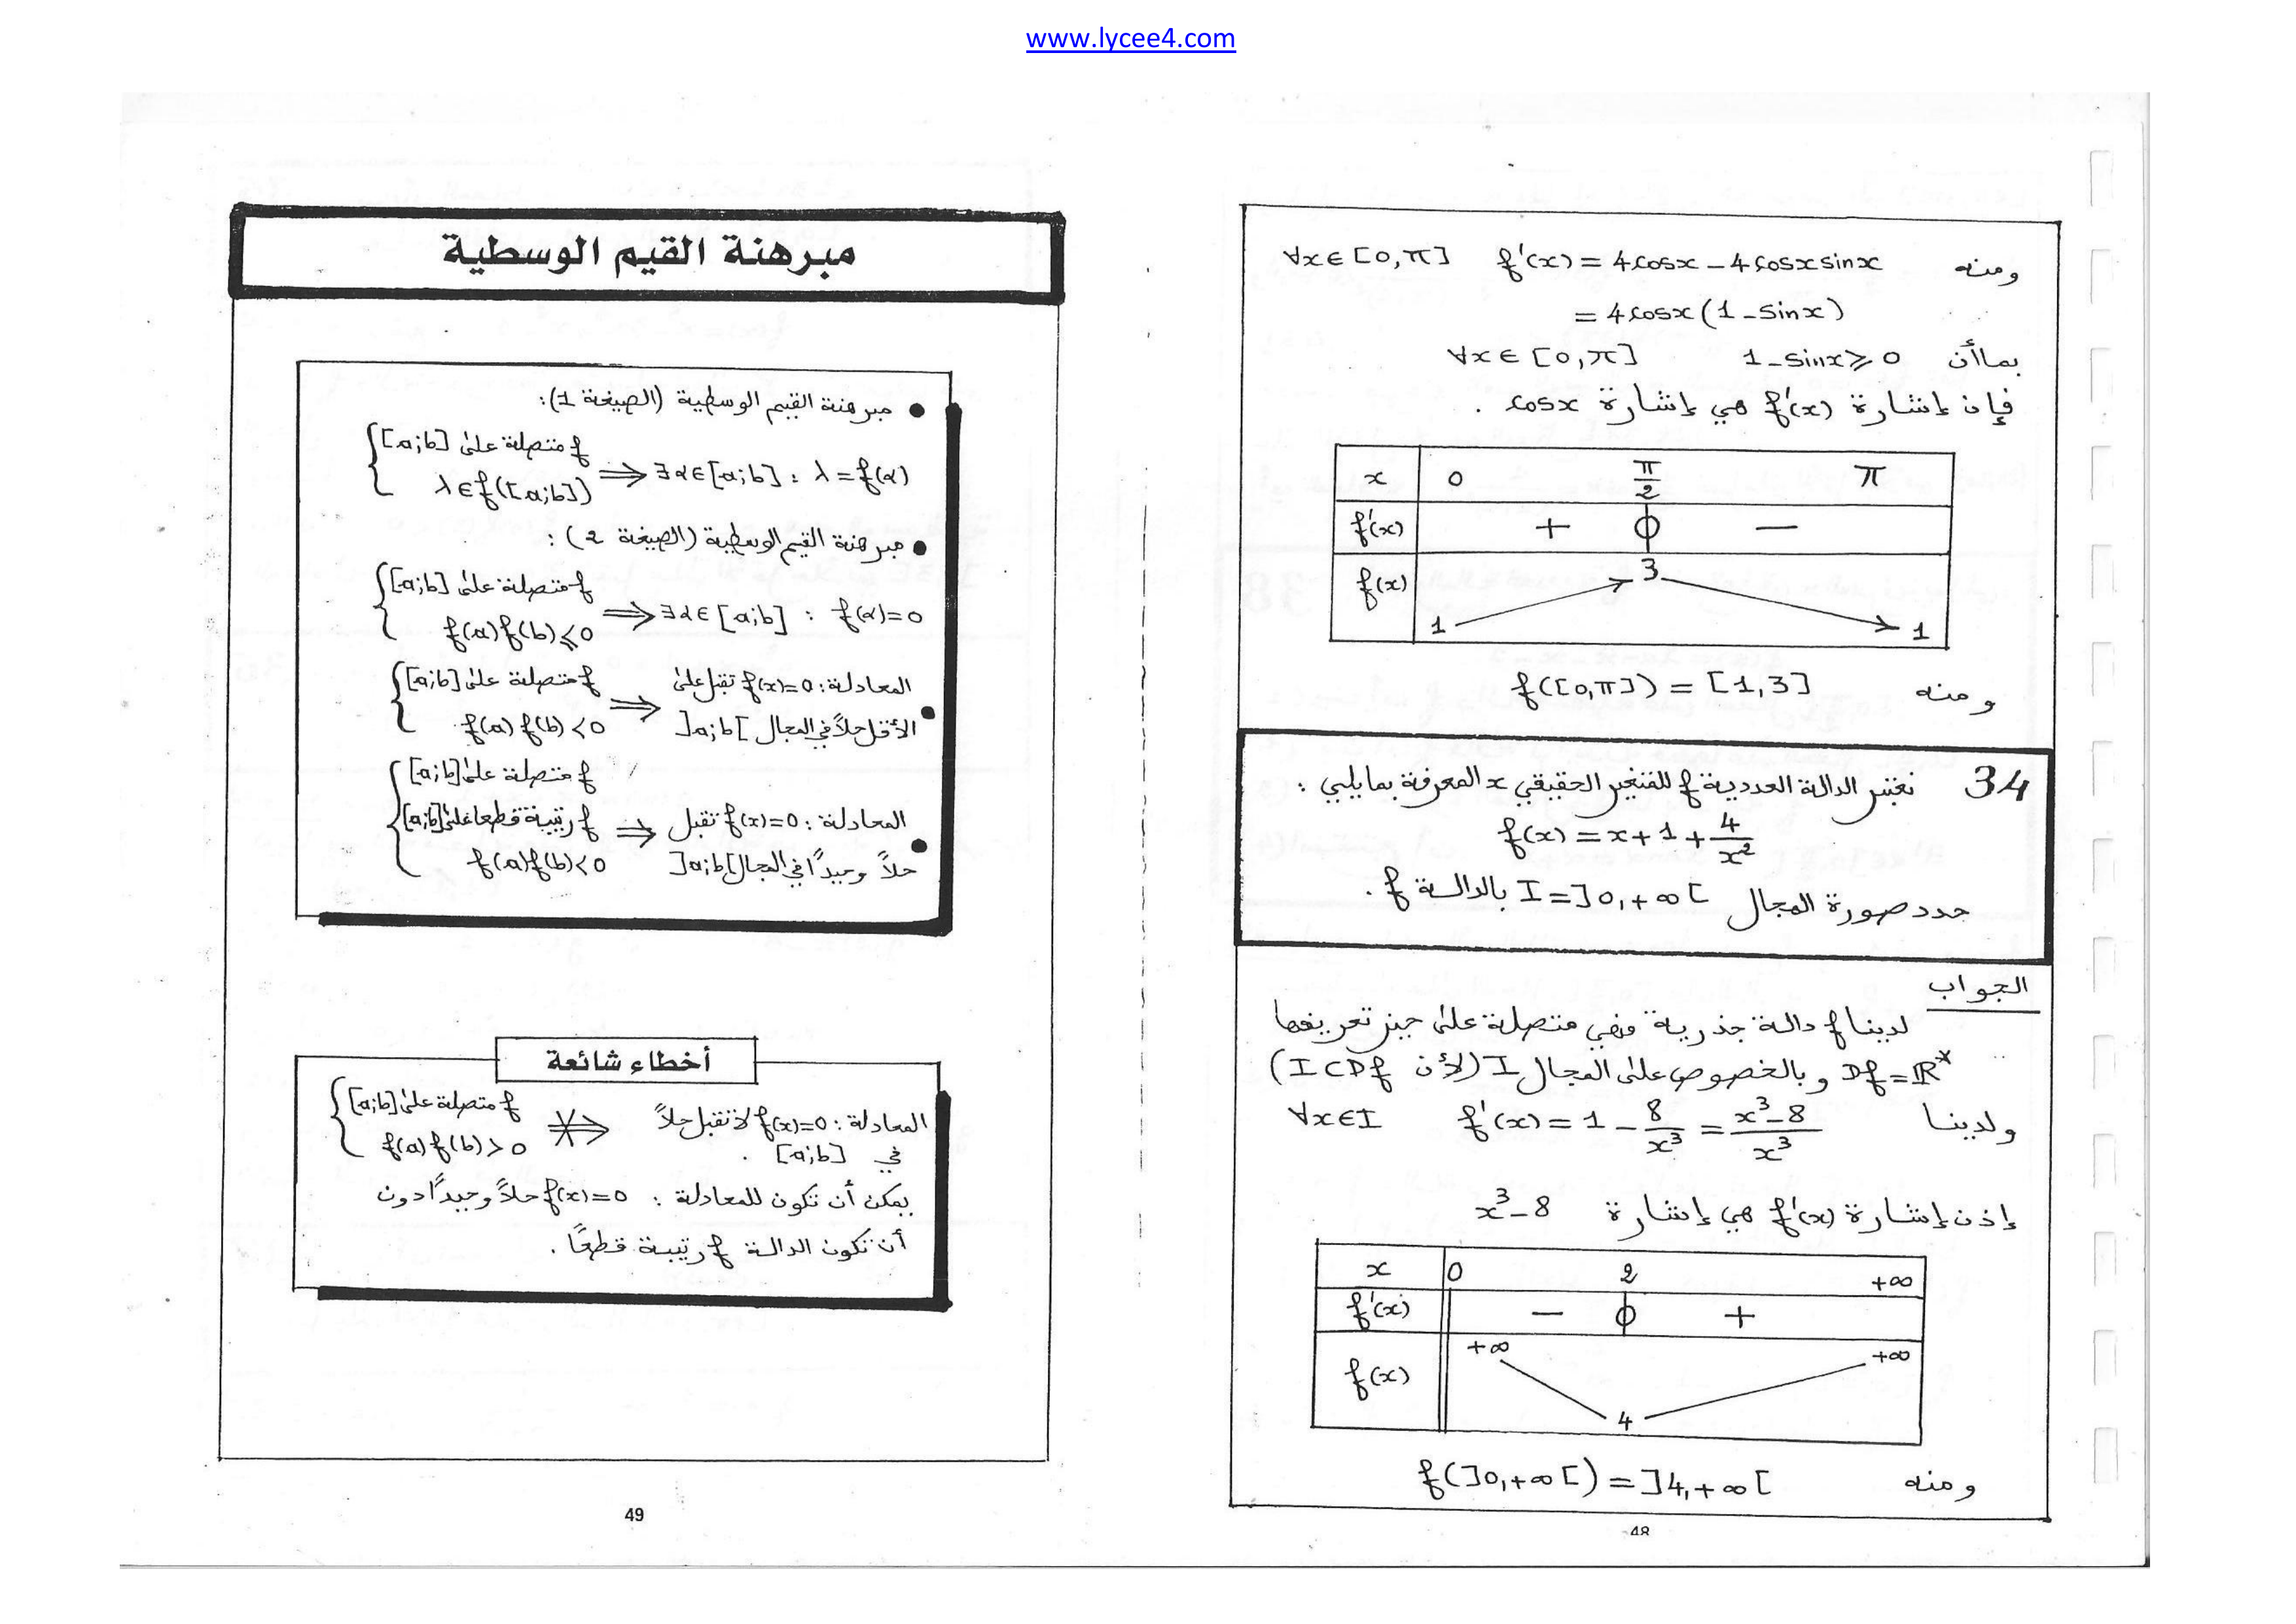 www.lycee4.com
ومنه f'(x) = 4cosx - 4cosx sinx ∀x∈[0,π]
= 4cosx(1-sinx)
بما أن 1-sinx ⩾ 0 ∀x∈[0,π]
فإن إشارة f'(x) هي إشارة cosx .
x 0 π/2 π
f'(x) + 0 -
f(x) 1 3 1
ومنه f([0,π]) = [1,3]
34 نعتبر الدالة العددية f للمتغير الحقيقي x المعرفة بمايلي :
f(x) = x + 1 + 4/x²
حدد صورة المجال I = ]0,+∞[ بالدالة f .
الجواب
لدينا f دالة جذرية فهي متصلة على حيز تعريفها
Df = ℝ* وبالخصوص على المجال I (لأن I⊂Df)
ولدينا f'(x) = 1 - 8/x³ = (x³-8)/x³ ∀x∈I
إذن إشارة f'(x) هي إشارة x³-8
x 0 2 +∞
f'(x) - 0 +
f(x) +∞ 4 +∞
ومنه f(]0,+∞[) = ]4,+∞[
48
مبرهنة القيم الوسطية
• مبرهنة القيم الوسطية (الصيغة 1):
{ f متصلة على [a;b]
λ∈f([a;b]) ⟹ ∃α∈[a;b] : λ = f(α)
• مبرهنة القيم الوسطية (الصيغة 2) :
{ f متصلة على [a;b]
f(a)f(b) ⩽ 0 ⟹ ∃α∈[a;b] : f(α)=0
{ f متصلة على [a;b]
f(a)f(b) < 0 ⟹
• المعادلة : f(x)=0 تقبل على
الأقل حلاً في المجال ]a;b[
{ f متصلة على [a;b]
f رتيبة قطعا على [a;b]
f(a)f(b) < 0 ⟹
• المعادلة : f(x)=0 تقبل
حلاً وحيداً في المجال ]a;b[
أخطاء شائعة
{ f متصلة على [a;b]
f(a)f(b) > 0 ⇏
المعادلة : f(x)=0 لا تقبل حلاً
في [a;b] .
يمكن أن تكون للمعادلة : f(x)=0 حلاً وحيداً دون
أن تكون الدالة f رتيبة قطعاً .
49